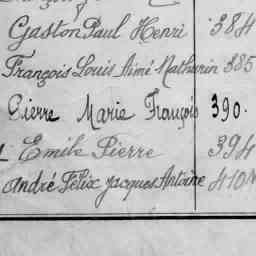 Gaston Paul Henri 384
François Louis Aimé Mathurin 385
Pierre Marie François 390.
Emile Pierre 394
André Félix Jacques Antoine 410